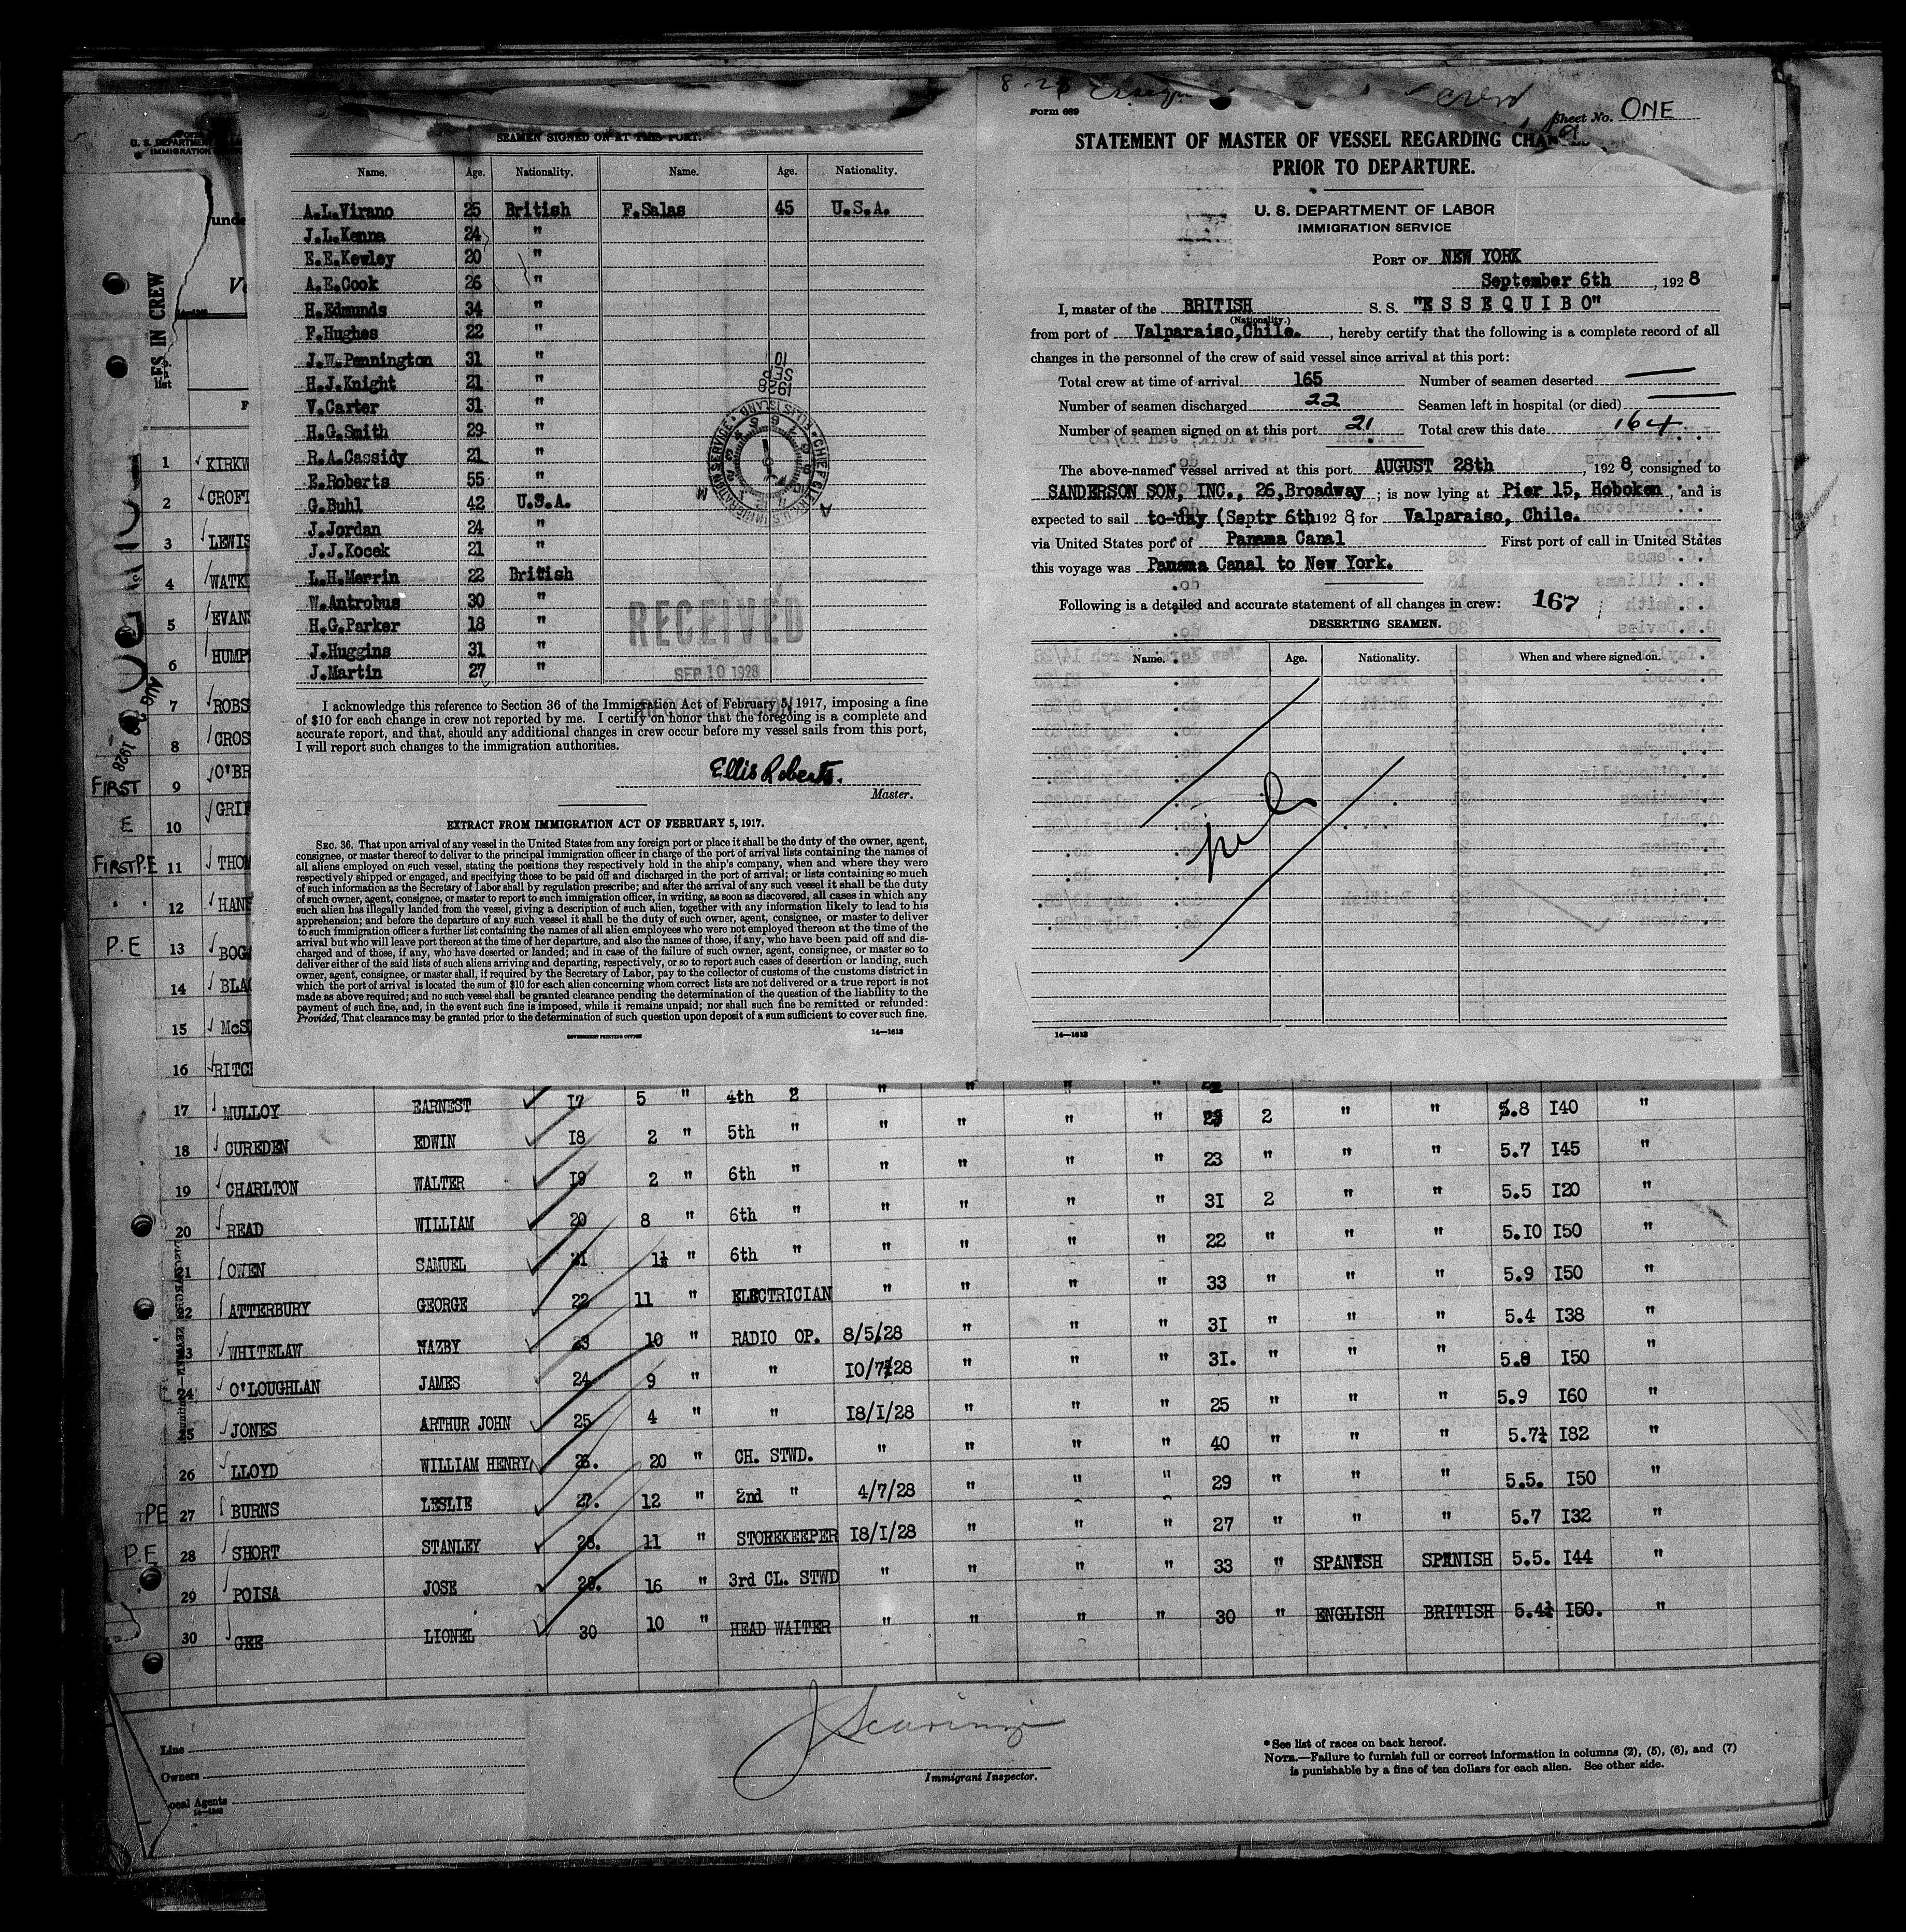 SEAMEN SIGNED ON AT THIS PORT.
Name. Age. Nationality. Name. Age. Nationality.
A.L.Virano 25 British F.Salas 45 U.S.A.
J.L.Kenna 24 "
E.E.Kewley 20 "
A.E.Cook 26 "
H.Edmunds 34 "
F.Hughes 22 "
J.W.Pennington 31 "
H.J.Knight 21 "
V.Carter 31 "
H.G.Smith 29 "
R.A.Cassidy 21 "
E.Roberts 55 "
G.Buhl 42 U.S.A.
J.Jordan 24 "
J.J.Kocek 21 "
L.H.Merrin 22 British
W.Antrobus 30 "
H.G.Parker 18 "
J.Huggins 31 "
J.Martin 27 "
RECEIVED
SEP 10 1928
I acknowledge this reference to Section 36 of the Immigration Act of February 5, 1917, imposing a fine
of $10 for each change in crew not reported by me. I certify on honor that the foregoing is a complete and
accurate report, and that, should any additional changes in crew occur before my vessel sails from this port,
I will report such changes to the immigration authorities.
Ellis Roberts.
Master.
EXTRACT FROM IMMIGRATION ACT OF FEBRUARY 5, 1917.
SEC. 36. That upon arrival of any vessel in the United States from any foreign port or place it shall be the duty of the owner, agent,
consignee, or master thereof to deliver to the principal immigration officer in charge of the port of arrival lists containing the names of
all aliens employed on such vessel, stating the positions they respectively hold in the ship's company, when and where they were
respectively shipped or engaged, and specifying those to be paid off and discharged in the port of arrival; or lists containing so much
of such information as the Secretary of Labor shall by regulation prescribe; and after the arrival of any such vessel it shall be the duty
of such owner, agent, consignee, or master to report to such immigration officer, in writing, as soon as discovered, all cases in which any
such alien has illegally landed from the vessel, giving a description of such alien, together with any information likely to lead to his
apprehension; and before the departure of any such vessel it shall be the duty of such owner, agent, consignee, or master to deliver
to such immigration officer a further list containing the names of all alien employees who were not employed thereon at the time of the
arrival but who will leave port thereon at the time of her departure, and also the names of those, if any, who have been paid off and dis-
charged and of those, if any, who have deserted or landed; and in case of the failure of such owner, agent, consignee, or master so to
deliver either of the said lists of such aliens arriving and departing, respectively, or so to report such cases of desertion or landing, such
owner, agent, consignee, or master shall, if required by the Secretary of Labor, pay to the collector of customs of the customs district in
which the port of arrival is located the sum of $10 for each alien concerning whom correct lists are not delivered or a true report is not
made as above required; and no such vessel shall be granted clearance pending the determination of the question of the liability to the
payment of such fine, and, in the event such fine is imposed, while it remains unpaid; nor shall such fine be remitted or refunded:
Provided, That clearance may be granted prior to the determination of such question upon deposit of a sum sufficient to cover such fine.
GOVERNMENT PRINTING OFFICE 14—1613
Form 689
Sheet No. ONE
STATEMENT OF MASTER OF VESSEL REGARDING
PRIOR TO DEPARTURE.
U. S. DEPARTMENT OF LABOR
IMMIGRATION SERVICE
PORT OF NEW YORK
September 6th, 1928
I, master of the BRITISH S. S. "E S S E Q U I B O"
(Nationality.)
from port of Valparaiso, Chile., hereby certify that the following is a complete record of all
changes in the personnel of the crew of said vessel since arrival at this port:
Total crew at time of arrival 165 Number of seamen deserted —
Number of seamen discharged 22 Seamen left in hospital (or died) —
Number of seamen signed on at this port 21 Total crew this date 164
The above-named vessel arrived at this port AUGUST 28th, 1928, consigned to
SANDERSON SON, INC., 26,Broadway; is now lying at Pier 15, Hoboken, and is
expected to sail to-day (Septr 6th 1928, for Valparaiso, Chile.
via United States port of Panama Canal First port of call in United States
this voyage was Panama Canal to New York.
Following is a detailed and accurate statement of all changes in crew: 167
DESERTING SEAMEN.
Name. Age. Nationality. When and where signed on.
14—1613
U. S. DEPARTMENT
IMMIGRATION
1 KIRKW
2 CROFT
3 LEWIS
4 WATK
5 EVANS
6 HUMP
7 ROBS
8 CROS
FIRST 9 O'BR
E 10 GRIF
FIRST P.E 11 THOM
12 HANS
P.E 13 BOG
14 BLA
15 McS
16 RITCH
17 MULLOY EARNEST 17 5 " 4th 2 " " " " 2 " " 5.8 140 "
18 CUREDEN EDWIN 18 2 " 5th " " " " " 23 " " " 5.7 145 "
19 CHARLTON WALTER 19 2 " 6th " " " " " 31 2 " " 5.5 120 "
20 READ WILLIAM 20 8 " 6th " " " " " 22 " " " 5.10 150 "
21 OWEN SAMUEL 21 1½ " 6th " " " " " 33 " " " 5.9 150 "
22 ATTERBURY GEORGE 22 11 " ELECTRICIAN " " " " 31 " " " 5.4 138 "
23 WHITELAW NAZBY 23 10 " RADIO OP. 8/5/28 " " " 31. " " " 5.8 150 "
24 O'LOUGHLAN JAMES 24 9 " " 10/7/28 " " " 25 " " " 5.9 160 "
25 JONES ARTHUR JOHN 25 4 " " 18/1/28 " " " 40 " " " 5.7½ 182 "
26 LLOYD WILLIAM HENRY 26. 20 " CH. STWD. " " " " 29 " " " 5.5. 150 "
PE 27 BURNS LESLIE 27. 12 " 2nd " 4/7/28 " " " 27 " " " 5.7 132 "
P.E 28 SHORT STANLEY 28. 11 " STOREKEEPER 18/1/28 " " " 33 " SPANISH SPENISH 5.5. 144 "
29 POISA JOSE 29. 16 " 3rd CL. STWD " " " " 30 " ENGLISH BRITISH 5.4½ 150. "
30 GEE LIONEL 30 10 " HEAD WAITER "
Line
Owners
Local Agents
Immigrant Inspector.
*See list of races on back hereof.
NOTE.—Failure to furnish full or correct information in columns (2), (5), (6), and (7)
is punishable by a fine of ten dollars for each alien. See other side.